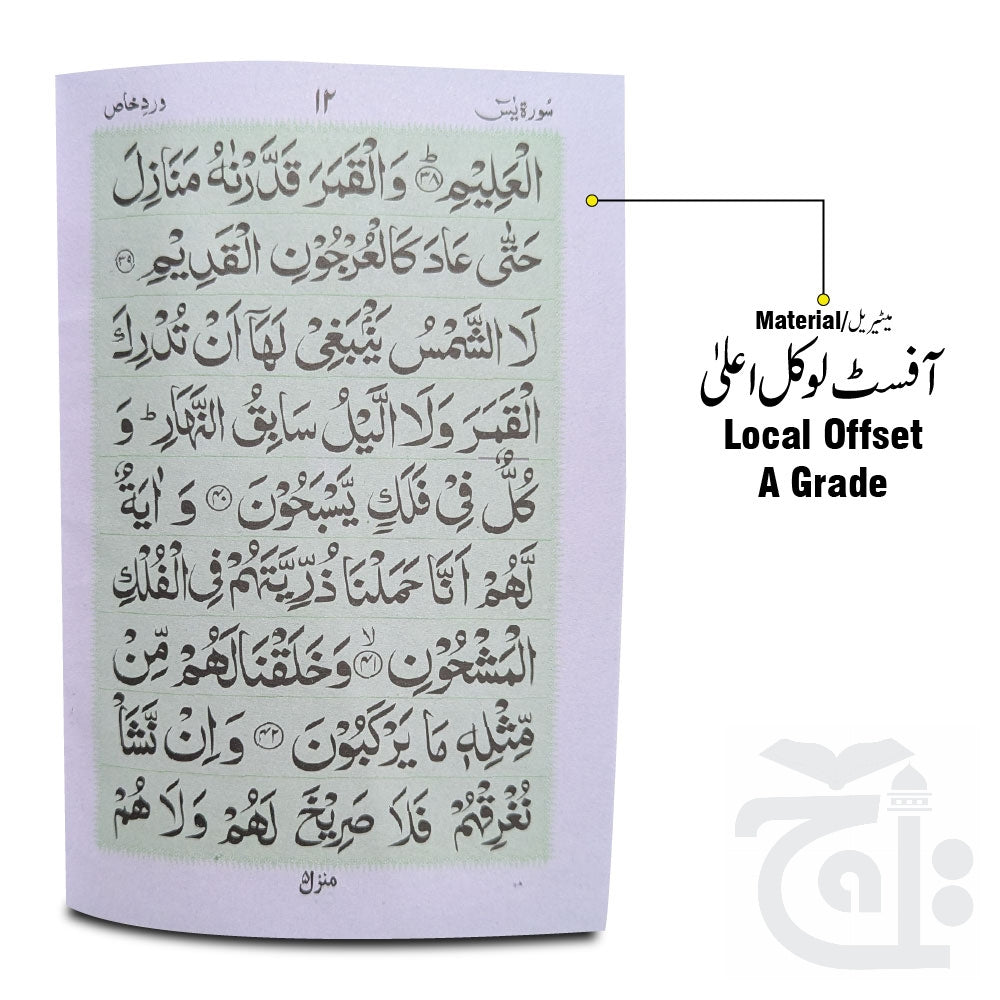 سورة يٰسٓ ١٢ وردِ خاص
الْعَلِيْمِ ؕ﴿٣٨﴾ وَالْقَمَرَ قَدَّرْنٰهُ مَنَازِلَ
حَتّٰى عَادَ كَالْعُرْجُوْنِ الْقَدِيْمِ ﴿٣٩﴾
لَا الشَّمْسُ يَنْۢبَغِىْ لَهَاۤ اَنْ تُدْرِكَ
الْقَمَرَ وَلَا الَّيْلُ سَابِقُ النَّهَارِ ؕ وَ
كُلٌّ فِىْ فَلَكٍ يَّسْبَحُوْنَ ﴿٤٠﴾ وَ اٰيَةٌ
لَّهُمْ اَنَّا حَمَلْنَا ذُرِّيَّتَهُمْ فِى الْفُلْكِ
الْمَشْحُوْنِ ۙ﴿٤١﴾ وَخَلَقْنَا لَهُمْ مِّنْ
مِّثْلِهٖ مَا يَرْكَبُوْنَ ﴿٤٢﴾ وَاِنْ نَّشَاْ
نُغْرِقْهُمْ فَلَا صَرِيْخَ لَهُمْ وَلَا هُمْ
منزل ۵
Material/میٹیریل
آفسٹ لوکل اعلیٰ
Local Offset
A Grade